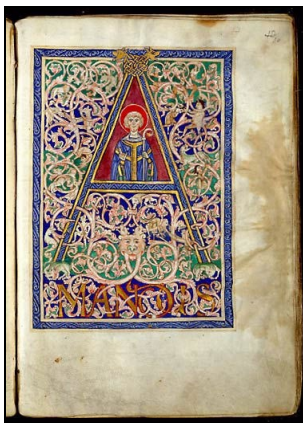 A
MANDUS